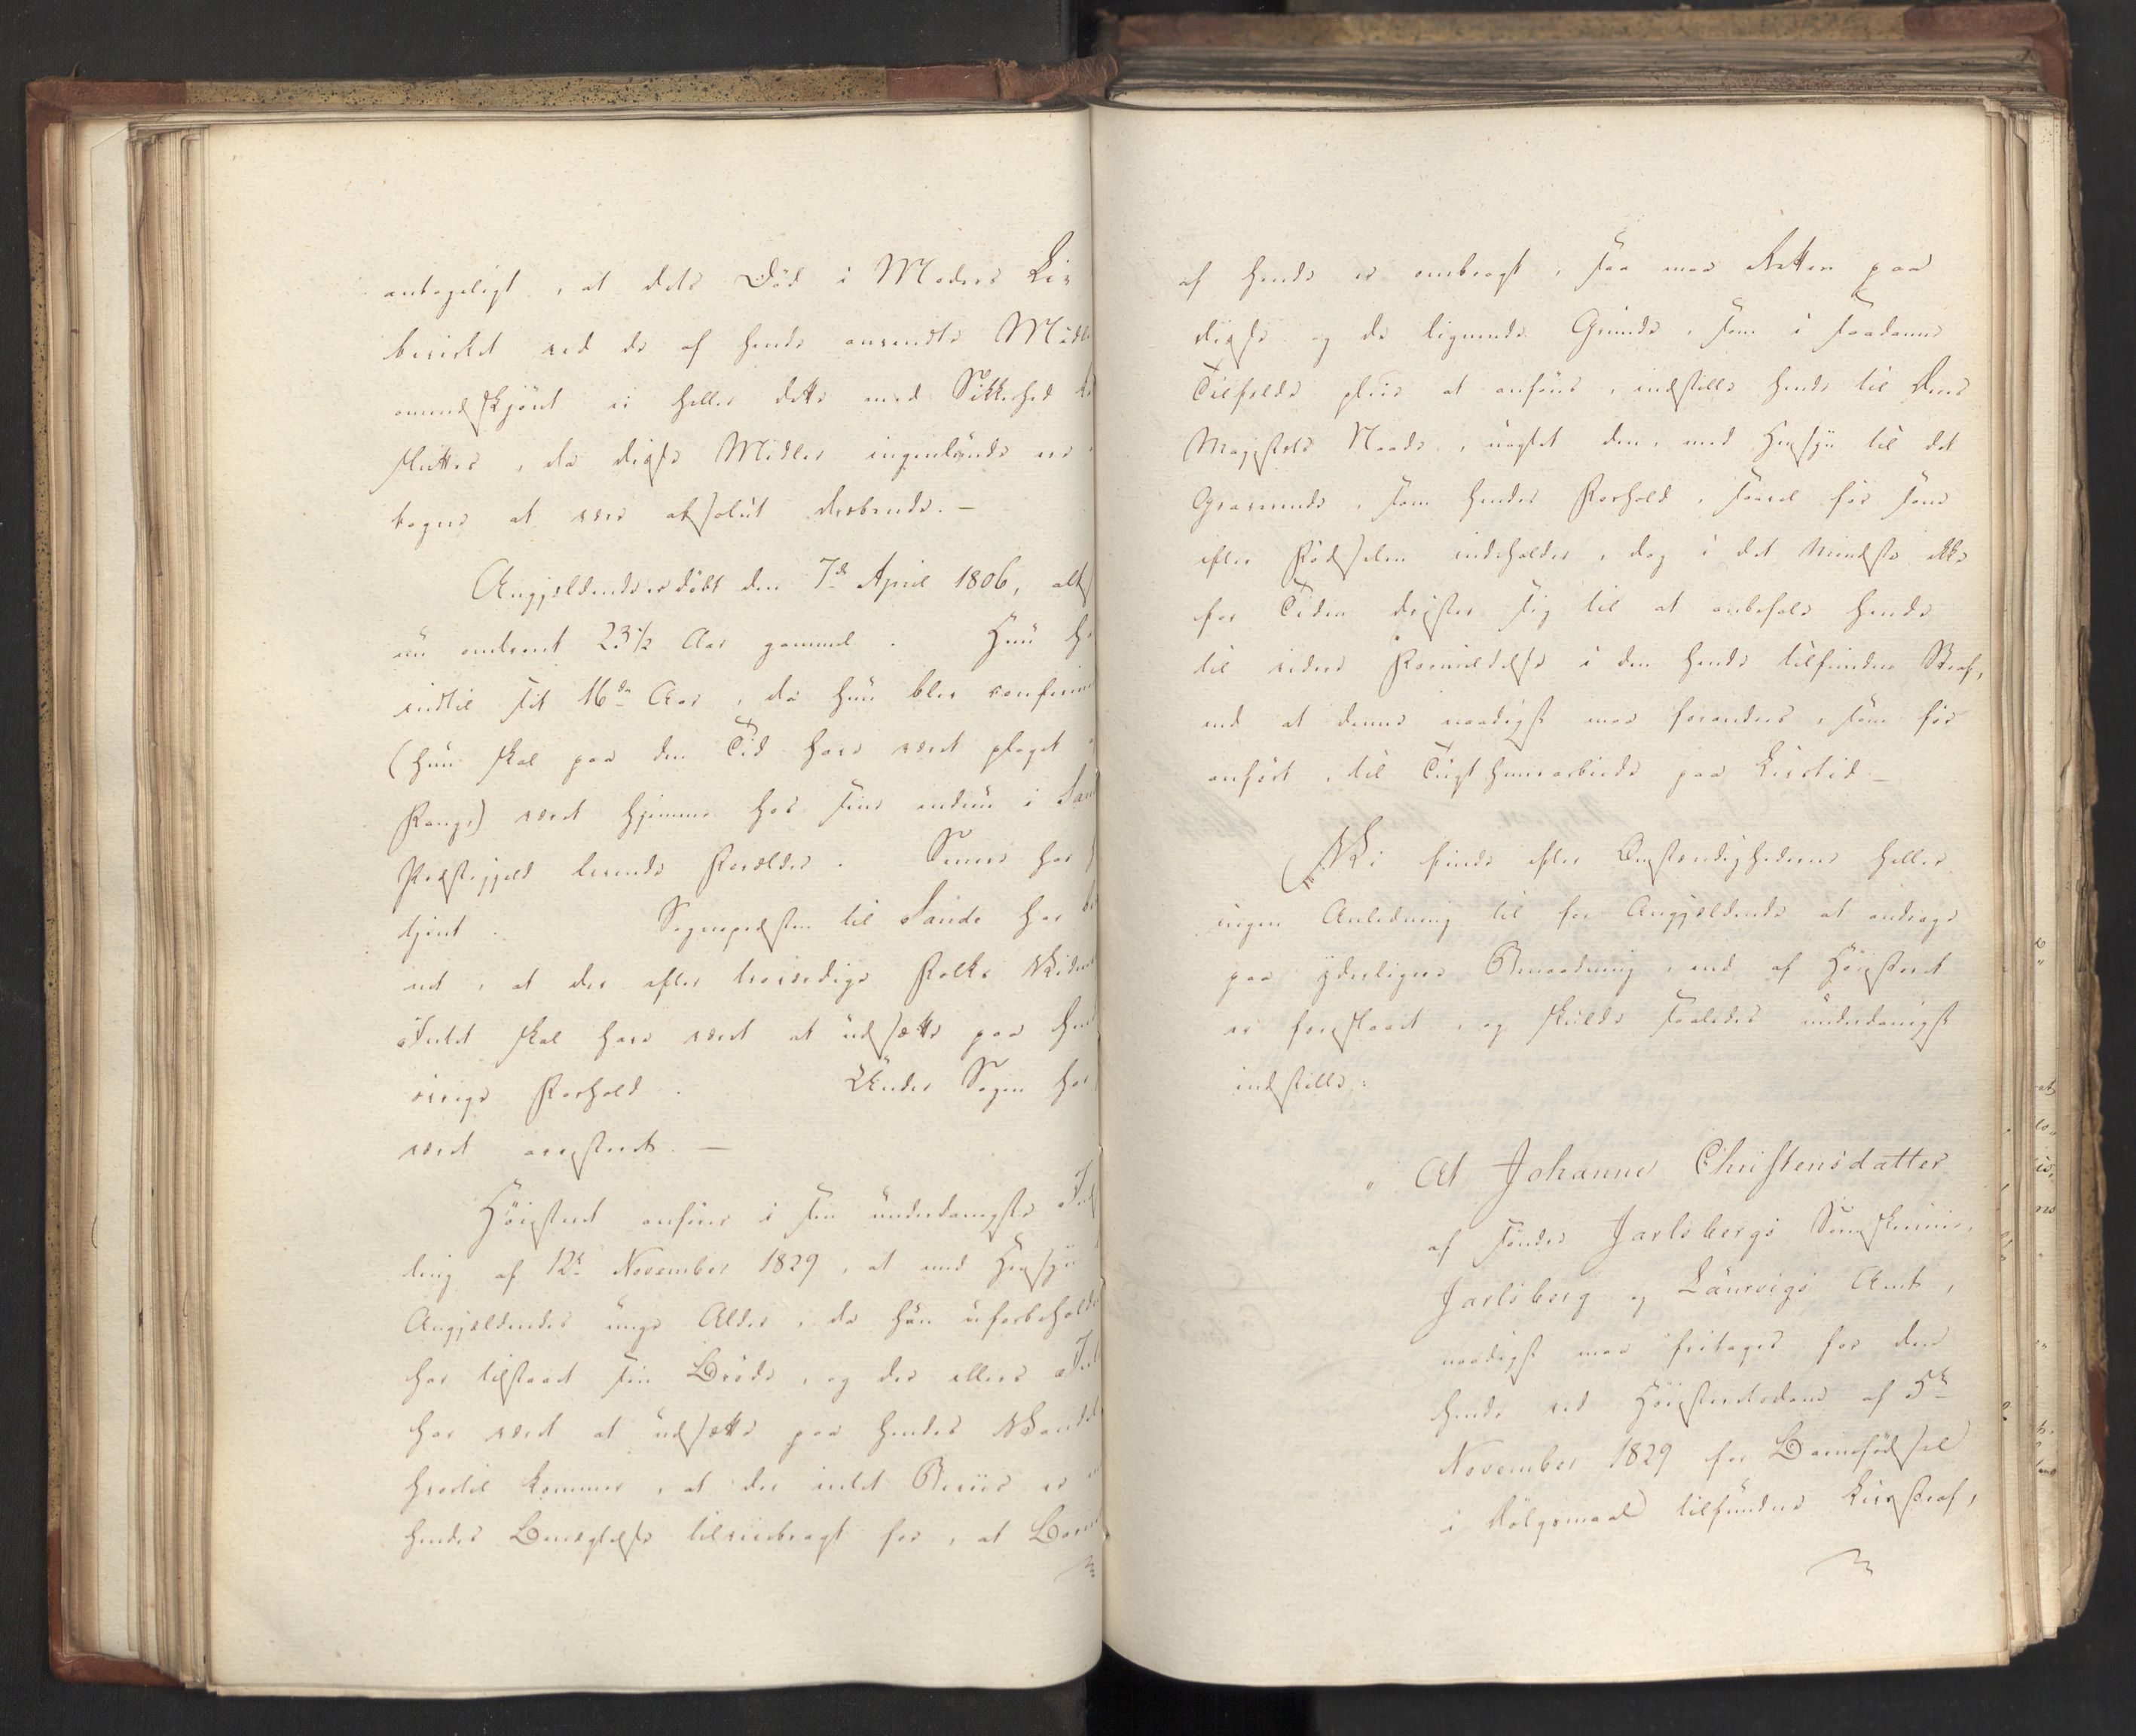 antageligt, at dets Död i Moders Liv
bevirket ved de af hende anvendte Midl
omendskjönt ei heller dette med Sikkerhed
sluttes, da disse Midler ingenlunde ere
tagne at være absolut dræbende. —
Angjeldende er döbt den 7de April 1806, alts
nu omtrent 23 1/2 Aar gammel. Hun h
indtil sit 16de Aar, da hun blev confirm
(hun skal paa den Tid have været plaget
) været hjemme hos sine endnu i San
Præstegjeld levende Forældre. Senere har
tjent. Sognepræsten til Sande har
et, at der efter troværdige Folks Vidne
Intet skal have været at udsætte paa hen
övrige Forhold. Under Sagen har
været arresteret. —
Höiesteret anförer i sin underdanigste Ind
ling af 12te November 1829, at med Hensyn
Angjeldendes unge Alder, da hun uforbehold
har tilstaaet sin Bröde, og der ellers Int
har været at udsætte paa hendes Vandel
hvortil kommer, at der intet Beviis er
hendes Benægtelse tilveiebragt for, at Barn
af hende er ombragt, saa maa Retten paa
disse og de lignende Grunde, som i saadanne
Tilfælde pleie at anföres, indstille hende til Deres
Majestæts Naade, uagtet den, med Hensyn til det
Graverende, som hendes Forhold, saavel för som
efter Födselen indeholder, dog i det mindste ikke
for Tiden drister sig til at anbefale hende
til videre Formildelse i den hende tilfundne Straf,
end at denne naadigst maa forandres, som för
anfört, til Tugthuusarbeide paa Livstid —
Vi finde efter Omstændighederne heller
ingen Anledning til for Angjeldende at andrage
paa yderligere Benaadning, end af Höiesteret
er foreslaaet, og skulde saaledes underdanigst
indstille:
" At Johanne Christensdatter
af Söndre Jarlsbergs Sorenskriverie,
Jarlsberg og Laurvigs Amt,
naadigst maa fritages for den
hende ved Höiesteretsdom af 5te
November 1829 for Barnefödsel
i Dölgsmaal tilfundne Livsstraf,